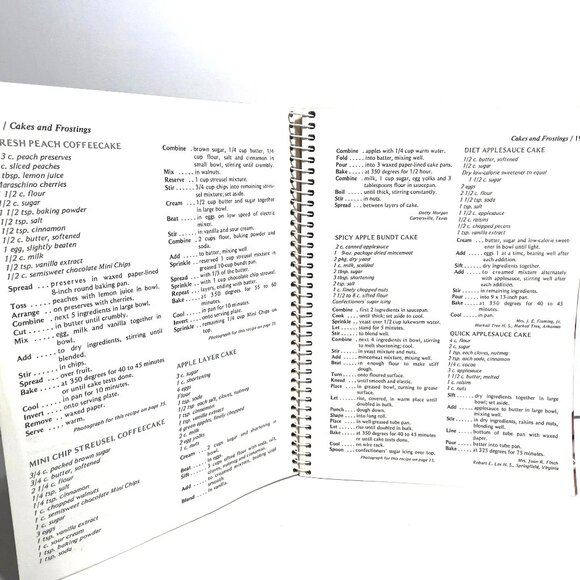 / Cakes and Frostings
RESH PEACH COFFEECAKE
3 c. peach preserves
c. sliced peaches
tbsp. lemon juice
Maraschino cherries
1 c. flour
1/2 c. sugar
1 1/2 tsp. baking powder
tsp. salt
1/2 tsp. cinnamon
c. butter, softened
1 egg, slightly beaten
1/2 c. milk
tsp. vanilla extract
1/2 c. semisweet chocolate Mini Chips
Spread . . . preserves in waxed paper-lined
8-inch round baking pan.
Toss . . . . . peaches with lemon juice in bowl.
Arrange . on preserves with cherries.
Combine . next 5 ingredients in large bowl.
Cut . . . . . in butter until crumbly.
Mix . . . . . egg, milk and vanilla together in
bowl.
Add . . . . . to dry ingredients, stirring until
blended.
Stir . . . . . in chips.
Spread . . . over fruit.
Bake . . . . at 350 degrees for 40 to 45 minutes
or until cake tests done.
Cool . . . . . in pan for 10 minutes.
Invert . . . . onto serving plate.
Remove . . waxed paper.
Serve . . . . warm.
Photograph for this recipe on page 35.
MINI CHIP STREUSEL COFFEECAKE
3/4 c. packed brown sugar
3/4 c. butter, softened
2 1/4 c. flour
1/4 tsp. salt
1/4 tsp. cinnamon
1 c. chopped walnuts
1 c. semisweet chocolate Mini Chips
1 c. sugar
3 eggs
1 tsp. vanilla extract
1 c. sour cream
1 tsp. baking powder
1 tsp. soda
Combine . brown sugar, 1/4 cup butter, 1/4
cup flour, salt and cinnamon in
small bowl, stirring until crumbly.
Mix . . . . . in walnuts.
Reserve . . 1 cup streusel mixture.
Stir . . . . . 3/4 cup chips into remaining streusel
mixture; set aside.
Cream . . . 1/2 cup butter and sugar together
in large bowl.
Beat . . . . . in eggs on low speed of electric
mixer.
Stir . . . . . in vanilla and sour cream.
Combine . 2 cups flour, baking powder and
soda.
Add . . . . . to batter, mixing well.
Sprinkle . . reserved 1 cup streusel mixture in
greased 10-cup bundt pan.
Spread . . . with 1/3 of the batter.
Sprinkle . . with 1 cup chocolate chip streusel.
Repeat . . . layers, ending with batter.
Bake . . . . . at 350 degrees for 55 to 60
minutes.
Cool . . . . . in pan for 10 minutes.
Invert . . . . onto serving plate.
Sprinkle . . remaining 1/4 cup Mini Chips on
top.
Photograph for this recipe on page 35.
APPLE LAYER CAKE
3 c. sugar
1 c. shortening
4 eggs
Flour
1 tsp. salt
1 1/2 tsp. each salt, cloves, nutmeg
1 tsp. cinnamon
1 tsp. vanilla extract
2 c. milk
2 egg yolks
1 c. nuts
Cream . . . 2 cups sugar and shortening in
bowl.
Beat . . . . . in eggs.
Sift . . . . .
Add . . . . .
Blend . . . . in vanilla.
Combine . apples with 1/4 cup warm water.
Fold . . . . . into batter, mixing well.
Pour . . . . . into 3 waxed paper-lined cake pans.
Bake . . . . . at 350 degrees for 1/2 hour.
Combine . milk, 1 cup sugar, egg yolks and 3
tablespoons flour in saucepan.
Boil . . . . . until thick, stirring constantly.
Stir . . . . . in nuts.
Spread . . . between layers of cake.
Dotty Morgan
Cartersville, Texas
SPICY APPLE BUNDT CAKE
2 c. canned applesauce
1 9-oz. package dried mincemeat
2 pkg. dry yeast
1 c. milk, scalded
2 tbsp. sugar
3 tbsp. shortening
2 tsp. salt
1 c. finely chopped nuts
7 1/2 to 8 c. sifted flour
Confectioners' sugar icing
Combine . first 2 ingredients in saucepan.
Cook . . . . until thick; set aside to cool.
Sprinkle . . yeast over 1/2 cup lukewarm water.
Let . . . . . . stand for 5 minutes.
Stir . . . . . to blend well.
Combine . next 4 ingredients in bowl, stirring
to melt shortening; cool.
Stir . . . . . in yeast mixture and nuts.
Add . . . . . mincemeat mixture, mixing well.
Beat . . . . . in enough flour to make stiff
dough.
Turn . . . . . onto floured surface.
Knead . . . until smooth and elastic.
Place . . . . in greased bowl, turning to grease
surface.
Let . . . . . . rise, covered, in warm place until
doubled in bulk.
Punch . . . . dough down.
Shape . . . . into long roll.
Place . . . . in well-greased tube pan.
Let . . . . . . rise until doubled in bulk.
Bake . . . . . at 350 degrees for 40 to 45 minutes
or until cake tests done.
Cool . . . . . on wire rack.
Spoon . . . confectioners' sugar icing over top.
Photograph for this recipe on page 35.
Cakes and Frostings / 19
DIET APPLESAUCE CAKE
1/2 c. butter, softened
1/2 c. sugar
Dry low-calorie sweetener to equal
1 c. sugar
2 eggs
2 1/2 c. flour
1 1/2 tsp. soda
1 tsp. salt
1 1/2 c. applesauce
1/2 c. raisins
1/2 c. chopped pecans
1 tsp. vanilla extract
Cream . . . butter, sugar and low-calorie sweetener
in bowl until light.
Add . . . . . eggs 1 at a time, beating well after
each addition.
Sift . . . . . dry ingredients together.
Add . . . . . to creamed mixture alternately
with applesauce, mixing well after
each addition.
Stir . . . . . in remaining ingredients.
Pour . . . . . into 9 x 13-inch pan.
Bake . . . . . at 350 degrees for 40 to 45
minutes.
Cool . . . . . in pan.
Mrs. J. E. Fleming, Jr.
Marked Tree H. S., Marked Tree, Arkansas
QUICK APPLESAUCE CAKE
4 c. flour
2 c. sugar
1 tsp. each cloves, nutmeg
2 tsp. each soda, cinnamon
1/4 c. cocoa
3 c. applesauce
1 c. butter, melted
1 c. raisins
1 c. nuts
Sift . . . . . dry ingredients together in large
bowl.
Add . . . . . applesauce to butter in large bowl,
mixing well.
Stir . . . . . in dry ingredients, raisins and nuts,
blending well.
Line . . . . . bottom of tube pan with waxed
paper.
Pour . . . . . batter into tube pan.
Bake . . . . . at 325 degrees for 75 minutes.
Mrs. Joan R. Finch
Robert E. Lee H. S., Springfield, Virginia